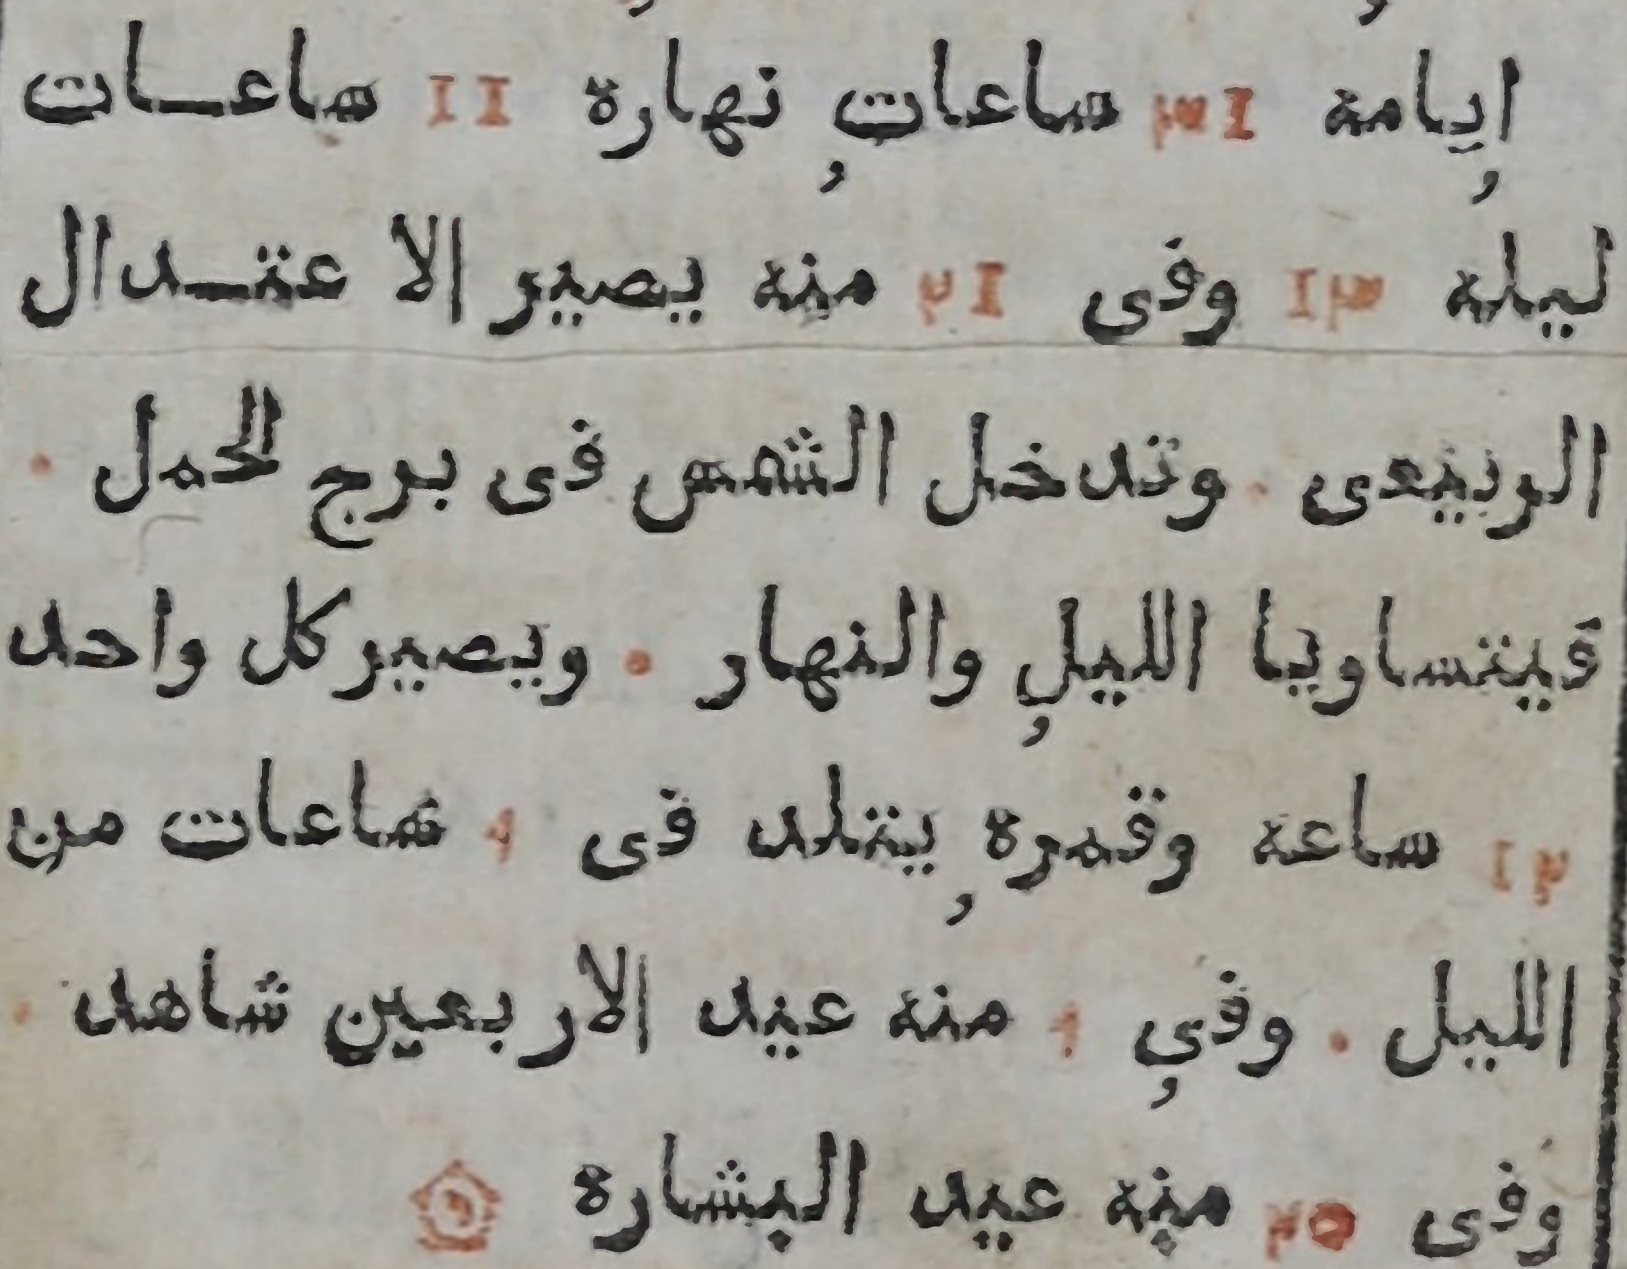 ايامه ٣١ ساعات نهاره ١١ ساعات
ليله ١٣ وفى ٢١ منه يصير الاعتدال
الربيعى . وتدخل الشمس فى برج الحمل .
فيتساويا الليل والنهار . ويصير كل واحد
١٢ ساعه وقمره يتلد فى ٩ شاعات من
الليل . وفى ٩ منه عيد الاربعين شاهد .
وفى ٢٥ منه عيد البشارة